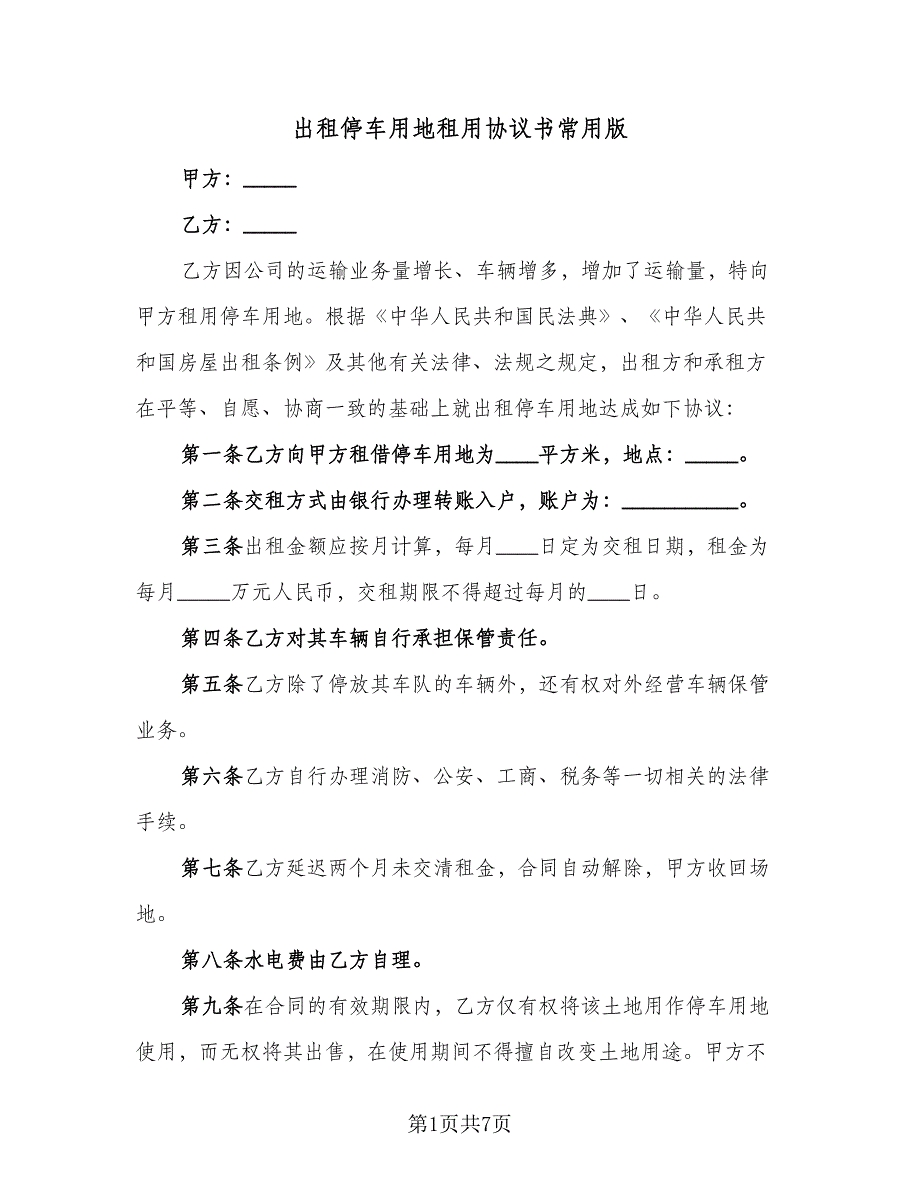 出租停车用地租用协议书常用版
甲方：_____
乙方：_____
乙方因公司的运输业务量增长、车辆增多，增加了运输量，特向
甲方租用停车用地。根据《中华人民共和国民法典》、《中华人民共
和国房屋出租条例》及其他有关法律、法规之规定，出租方和承租方
在平等、自愿、协商一致的基础上就出租停车用地达成如下协议：
第一条乙方向甲方租借停车用地为____平方米，地点：_____。
第二条交租方式由银行办理转账入户，账户为：___________。
第三条出租金额应按月计算，每月____日定为交租日期，租金为
每月_____万元人民币，交租期限不得超过每月的____日。
第四条乙方对其车辆自行承担保管责任。
第五条乙方除了停放其车队的车辆外，还有权对外经营车辆保管
业务。
第六条乙方自行办理消防、公安、工商、税务等一切相关的法律
手续。
第七条乙方延迟两个月未交清租金，合同自动解除，甲方收回场
地。
第八条水电费由乙方自理。
第九条在合同的有效期限内，乙方仅有权将该土地用作停车用地
使用，而无权将其出售，在使用期间不得擅自改变土地用途。甲方不
第1页共7页